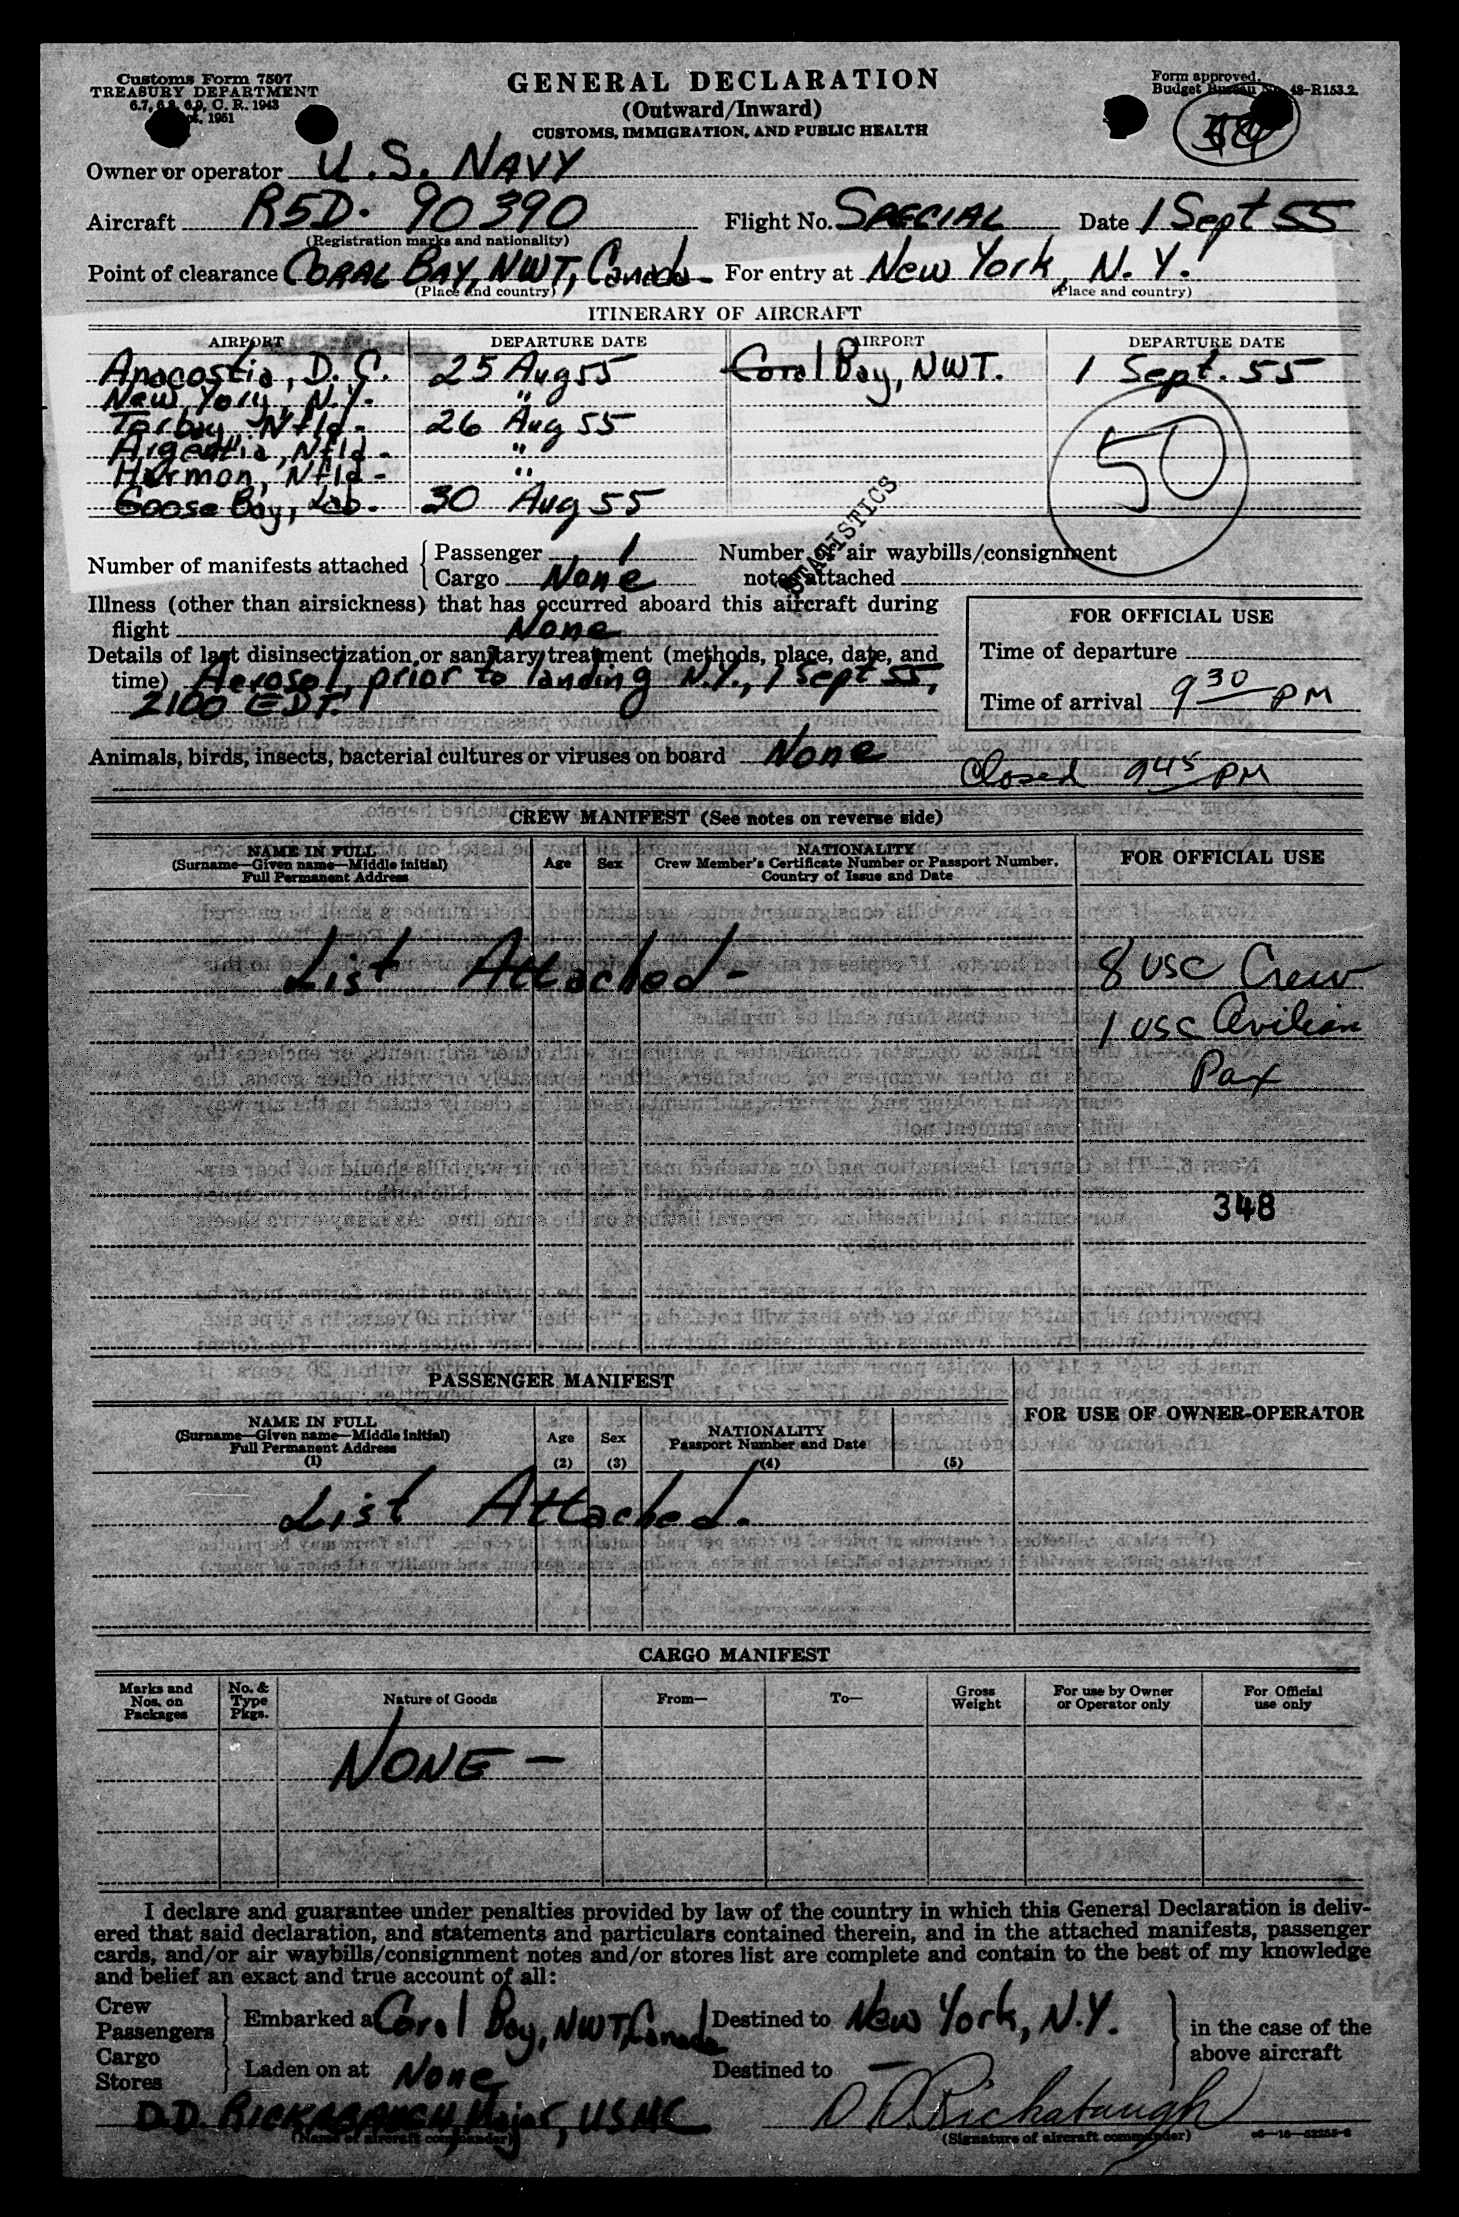 Customs Form 7507
TREASURY DEPARTMENT
6.7, 6.8, 6.9, C. R. 1943
1951
GENERAL DECLARATION
(Outward/Inward)
CUSTOMS, IMMIGRATION, AND PUBLIC HEALTH
Form approved.
Budget Bureau No. 48-R153.2.
Owner or operator U.S. NAVY
Aircraft R5D. 90390 Flight No. SPECIAL Date 1 Sept 55
(Registration marks and nationality)
Point of clearance CORAL BAY, NWT, Canada - For entry at New York, N.Y.
(Place and country) (Place and country)
ITINERARY OF AIRCRAFT
AIRPORT DEPARTURE DATE AIRPORT DEPARTURE DATE
Anacostia, D.C. 25 Aug 55 Coral Bay, NWT. 1 Sept. 55
New York, N.Y. "
Torbay, Nfld- 26 Aug 55
Argentia, Nfld- "
Harmon, Nfld- "
Goose Bay, Lab. 30 Aug 55
50
STATISTICS
Number of manifests attached { Passenger 1 Number of air waybills/consignment
Cargo None notes attached
Illness (other than airsickness) that has occurred aboard this aircraft during
flight None
Details of last disinsectization or sanitary treatment (methods, place, date, and
time) Aerosol, prior to landing N.Y., 1 Sept 55,
2100 EDT.
FOR OFFICIAL USE
Time of departure
Time of arrival 9 30 PM
Animals, birds, insects, bacterial cultures or viruses on board None
Closed 9 45 PM
CREW MANIFEST (See notes on reverse side)
NAME IN FULL
(Surname—Given name—Middle initial)
Full Permanent Address
Age Sex
NATIONALITY
Crew Member's Certificate Number or Passport Number,
Country of Issue and Date
FOR OFFICIAL USE
List Attached- 8 USC Crew
1 USC Civilian
Pax
348
PASSENGER MANIFEST
NAME IN FULL
(Surname—Given name—Middle initial)
Full Permanent Address
(1)
Age
(2)
Sex
(3)
NATIONALITY
Passport Number and Date
(4) (5)
FOR USE OF OWNER-OPERATOR
List Attached.
CARGO MANIFEST
Marks and
Nos. on
Packages
No. &
Type
Pkgs.
Nature of Goods
From—
To—
Gross
Weight
For use by Owner
or Operator only
For Official
use only
NONE -
I declare and guarantee under penalties provided by law of the country in which this General Declaration is deliv-
ered that said declaration, and statements and particulars contained therein, and in the attached manifests, passenger
cards, and/or air waybills/consignment notes and/or stores list are complete and contain to the best of my knowledge
and belief an exact and true account of all:
Crew
Passengers } Embarked at Coral Bay, NWT, Canada Destined to New York, N.Y. } in the case of the
above aircraft
Cargo
Stores } Laden on at None Destined to —
D.D. RICKABAUGH, Major, USMC D D Rickabaugh
(Name of aircraft commander) (Signature of aircraft commander)